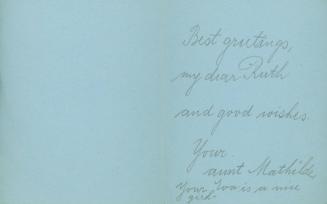 Best greetings,
my dear Ruth
and good wishes.
Your
aunt Mathilde
Your Eva is a nice
girl.